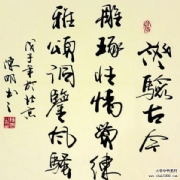 驗古今
雕琢性情練
雅頌調鑒風騷
戊子年於北京
陳明書之